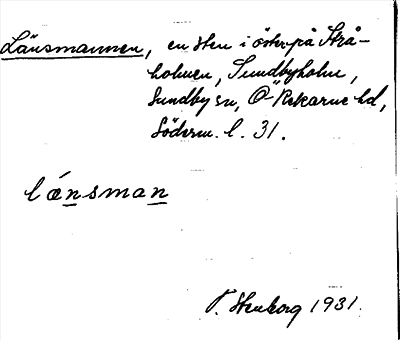 Länsmannen, en sten i öster på Strå-
holmen, Sundbyholm,
Sundby sn, Ö-Rekarne hd,
Söderm. l. 31.
lánsman
P. Stenborg 1931.